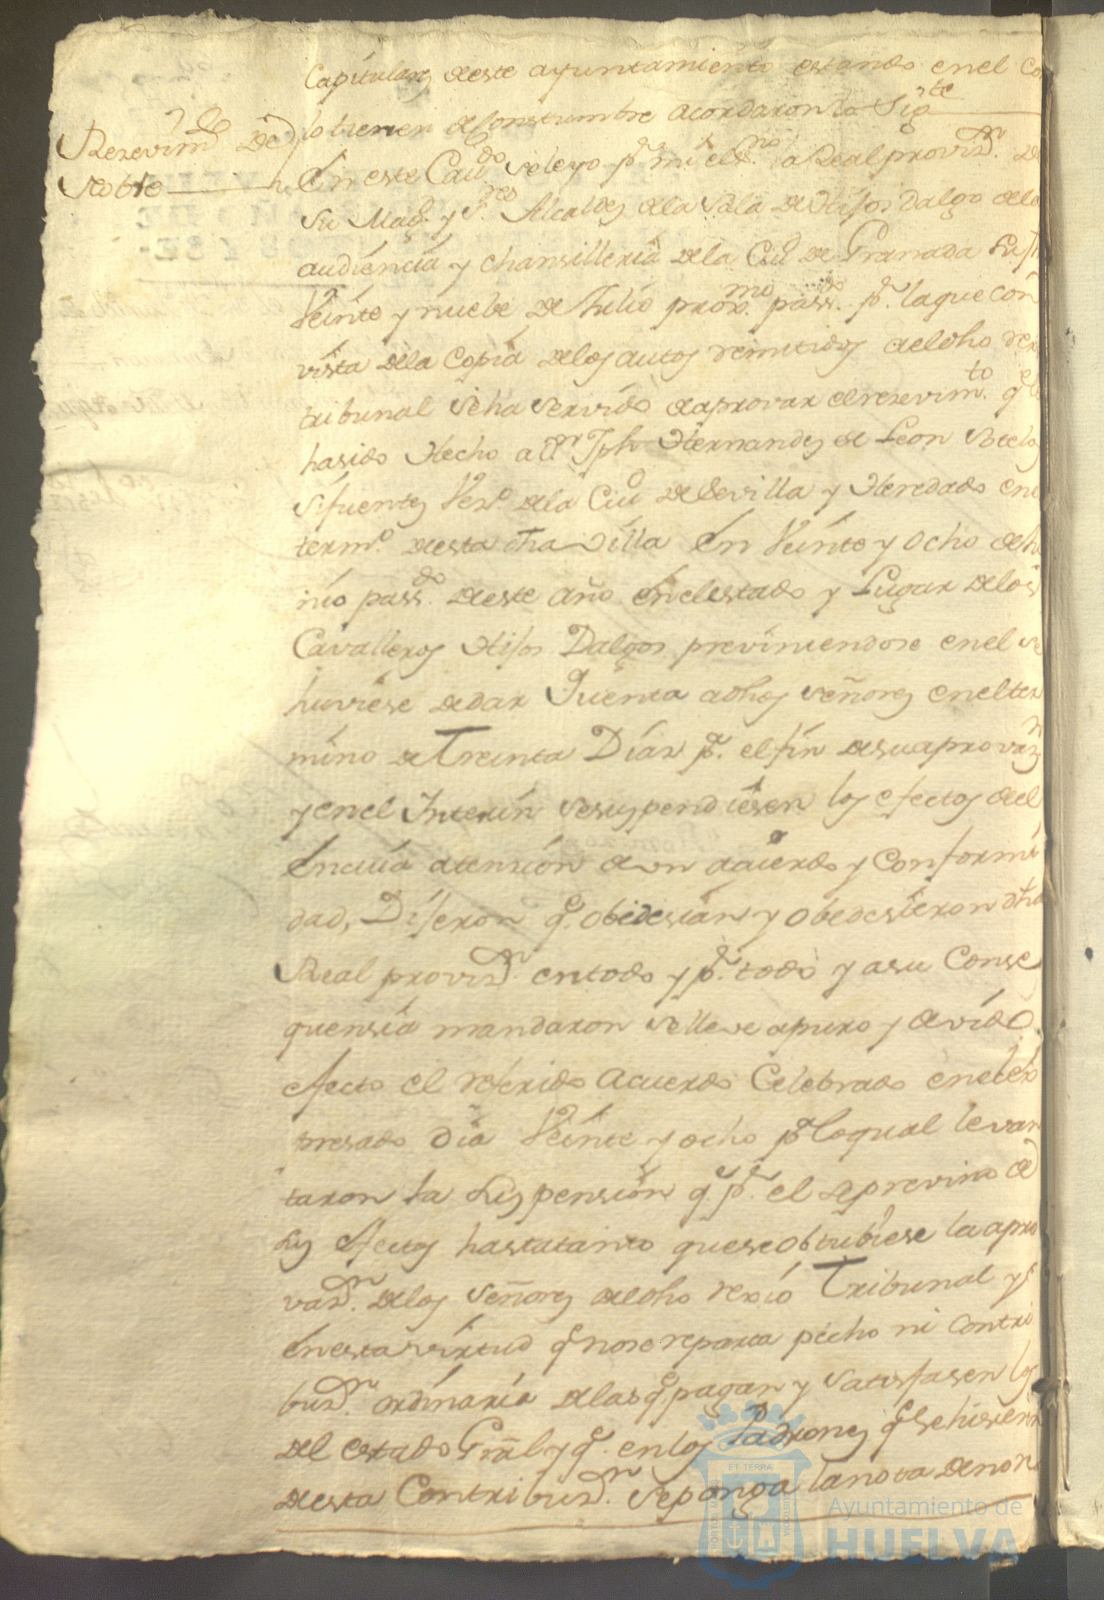 Capitulares deste ayuntamiento estando en el Co
Resevimto. De
Noble
lo tienen de Constumbre acordaron lo Sigte
En este Cavdo. se leyo pr. mi el Sno. la Real provisn. de
Su Magd. y Sres. Alcaldes de la Sala de Hijos Dalgo de la
audiencia y chansilleria de la Ciud. de Granada Su fha
Veinte y nuebe de Julio proxmo. passdo. pr. la que con
vista de la Copia de los autos remitidos a el dho rexo
tribunal se ha servido de aprovar el resevimto. qe.
ha sido Hecho a Dn. Jph Hernandez de Leon Sotelo
Sifuentes Vezo. de la Ciud. de Sevilla y Heredado en el
termo. de esta dha Villa En Veinte y ocho de Ju
nio passdo. de este año En el estado y Lugar de los
Cavalleros Hijos Dalgos previniendose en el se
huviese de dar Quenta a dhos señores en el ter
mino de Treinta Dias pa. el fin de su aprovazn.
y en el Interin se suspendiesen los efectos de el
En cuia atension de un acuerdo y Conformi
dad, Dijeron qe. obedesian y obedesieron dha
Real provisn. en todo y pr. todo y a su Conse
quensia mandaron se lleve a puro y devido
efecto el referido acuerdo Celebrado en el ex
presado dia Veinte y ocho pr. lo qual levan
taron la suspension qe. pr. el se previno de
sus efectos hasta tanto que se obtubiese la apro
vasn. de los señores de dho rexio Tribunal y
En esta virtud qe. no se reparta pecho ni contri
busn. ordinaria de las qe. pagan y satisfasen los
del estado Gral. y qe. en los Padrones qe. se hisieren
de esta Contribusn. se ponga la nota de no
Ayuntamiento de
HUELVA